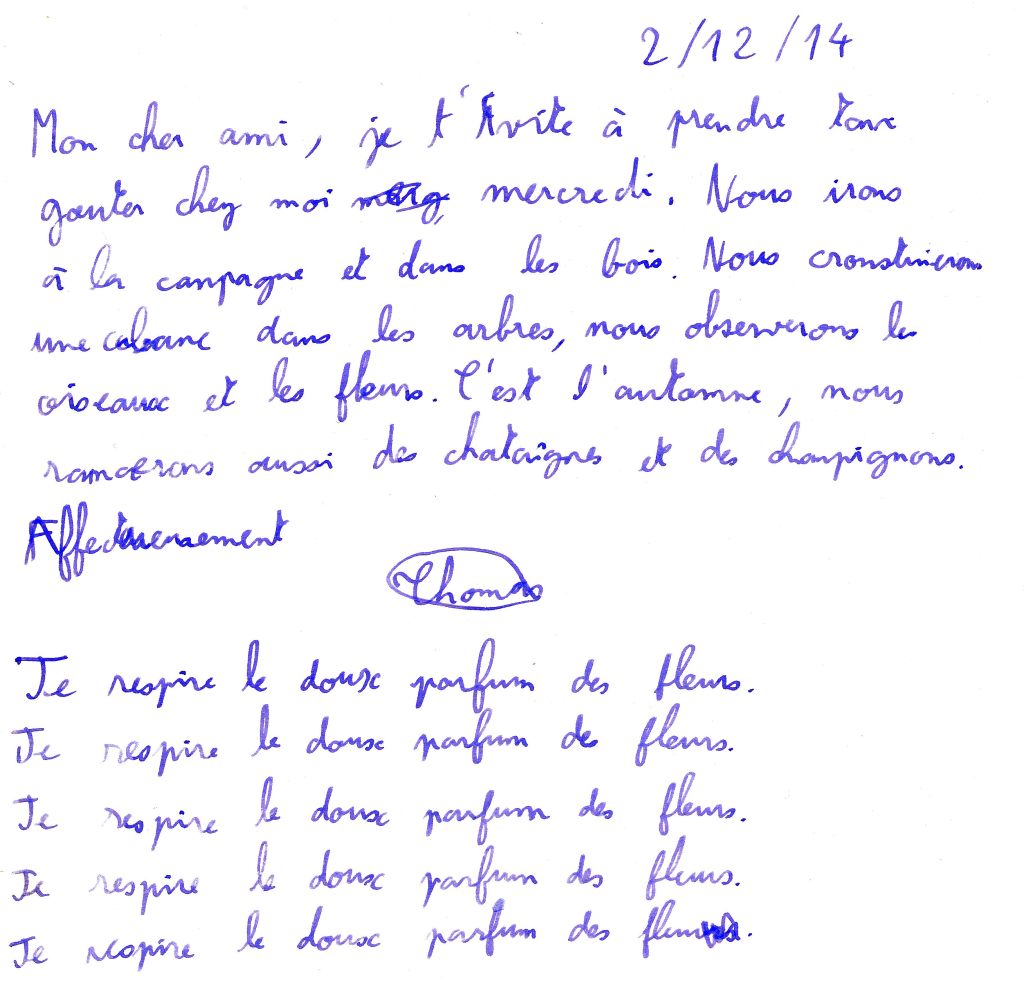 2/12/14
Mon cher ami, je t'invite à prendre ton
gouter chez moi mercredi. Nous irons
à la canpagne et dans les bois. Nous
une cabane dans les arbres, nous observerons les
oiseaux et les fleurs. C'est l'automne, nous
aussi des chataîgnes et des champignons.
Affectueusement
Thomas
Je respire le doux parfum des fleurs.
Je respire le doux parfum des fleurs.
Je respire le doux parfum des fleurs.
Je respire le doux parfum des fleurs.
Je respire le doux parfum des fleurs.